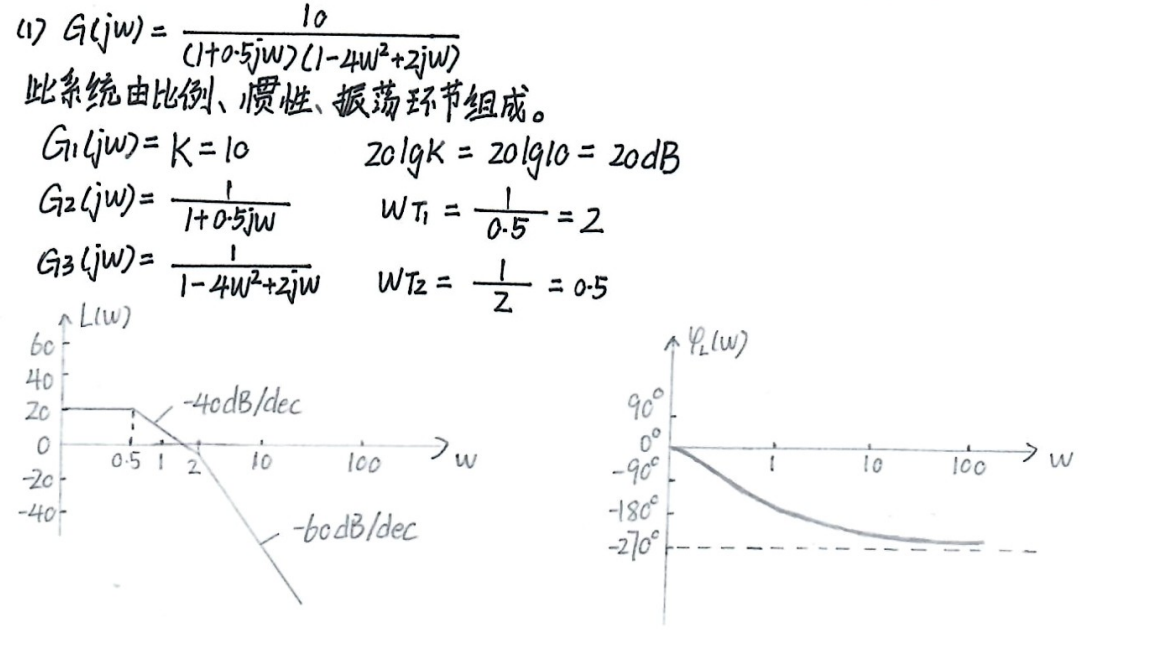 (1) G(jw) = 10 / (1+0.5jw)(1-4w²+2jw)
此系统由比例、惯性、振荡环节组成。
G1(jw) = K = 10    20lgK = 20lg10 = 20dB
G2(jw) = 1 / 1+0.5jw    WT1 = 1 / 0.5 = 2
G3(jw) = 1 / 1-4w²+2jw    WT2 = 1 / 2 = 0.5
L(w)
60
40
20
0
-20
-40
-40dB/dec
0.5 1 2 10 100 w
-60dB/dec
φL(w)
90°
0°
-90°
-180°
-270°
1 10 100 w